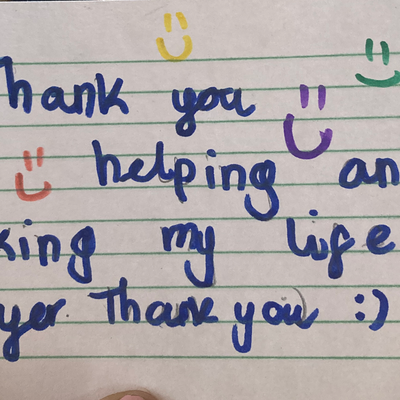 Thank you
helping an
king my life
yer Thank you :)